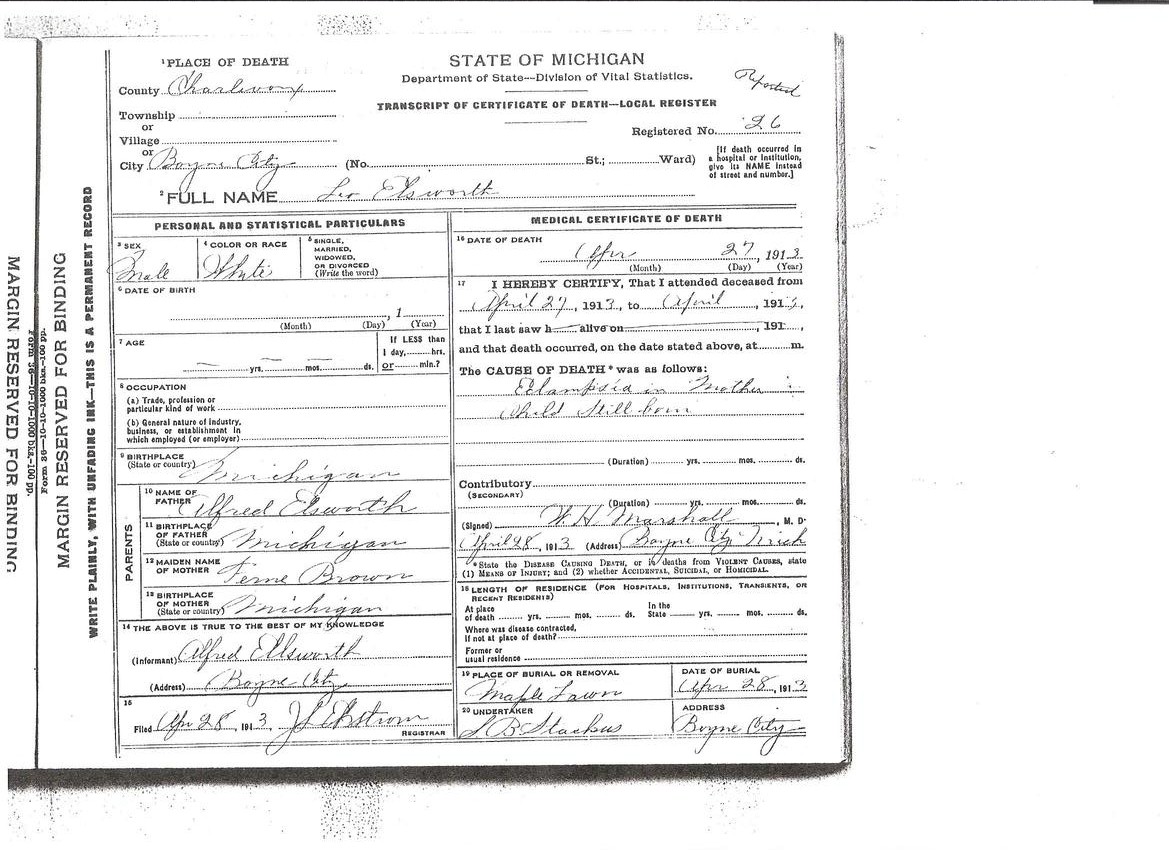 MARGIN RESERVED FOR BINDING
Form 36—10-10-1000 bks.-100 pp.
Form 36—10-10-1000 bks.-100 pp.
MARGIN RESERVED FOR BINDING
WRITE PLAINLY, WITH UNFADING INK—THIS IS A PERMANENT RECORD
1 PLACE OF DEATH
County Charlevoix
Township
or
Village
or
City Boyne City (No. St.; Ward)
STATE OF MICHIGAN
Department of State—Division of Vital Statistics.
TRANSCRIPT OF CERTIFICATE OF DEATH—LOCAL REGISTER
Reported
Registered No. 26
[If death occurred in
a hospital or institution,
give its NAME instead
of street and number.]
2 FULL NAME Leo Elsworth
PERSONAL AND STATISTICAL PARTICULARS
3 SEX
Male
4 COLOR OR RACE
White
5 SINGLE,
MARRIED,
WIDOWED,
OR DIVORCED
(Write the word)
6 DATE OF BIRTH
, 1
(Month) (Day) (Year)
7 AGE
yrs. mos. ds.
If LESS than
1 day, hrs.
or min.?
8 OCCUPATION
(a) Trade, profession or
particular kind of work
(b) General nature of industry,
business, or establishment in
which employed (or employer)
9 BIRTHPLACE
(State or country) Michigan
PARENTS
10 NAME OF
FATHER Alfred Elsworth
11 BIRTHPLACE
OF FATHER
(State or country) Michigan
12 MAIDEN NAME
OF MOTHER Ferne Brown
13 BIRTHPLACE
OF MOTHER
(State or country) Michigan
14 THE ABOVE IS TRUE TO THE BEST OF MY KNOWLEDGE
(Informant) Alfred Ellsworth
(Address) Boyne City
15
Filed Apr 28, 1913, J L Ekstrom
REGISTRAR
MEDICAL CERTIFICATE OF DEATH
16 DATE OF DEATH
Apr 27 1913
(Month) (Day) (Year)
17 I HEREBY CERTIFY, That I attended deceased from
April 27, 1913, to April, 191
that I last saw h alive on , 191 ,
and that death occurred, on the date stated above, at m.
The CAUSE OF DEATH* was as follows:
Eclampsia in Mother
Child Still born
(Duration) yrs. mos. ds.
Contributory
(SECONDARY)
(Duration) yrs. mos. ds.
(Signed) W. H. Marshall, M. D.
April 28, 1913 (Address) Boyne City Mich
*State the DISEASE CAUSING DEATH, or in deaths from VIOLENT CAUSES, state
(1) MEANS OF INJURY; and (2) whether ACCIDENTAL, SUICIDAL, or HOMICIDAL.
18 LENGTH OF RESIDENCE (FOR HOSPITALS, INSTITUTIONS, TRANSIENTS, OR
RECENT RESIDENTS)
At place
of death yrs. mos. ds.
In the
State yrs. mos. ds.
Where was disease contracted,
if not at place of death?
Former or
usual residence
19 PLACE OF BURIAL OR REMOVAL
Maple Lawn
DATE OF BURIAL
Apr 28, 1913
20 UNDERTAKER
S B Stackus
ADDRESS
Boyne City